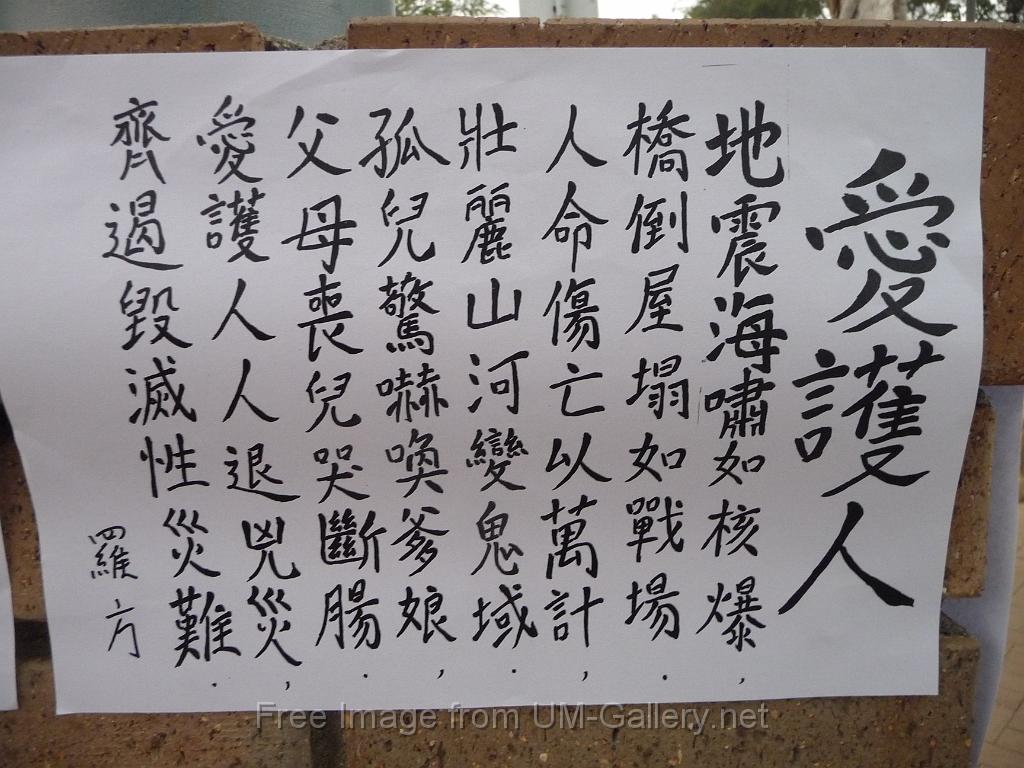 愛護人
地震海嘯如核爆，
橋倒屋塌如戰場．
人命傷亡以萬計，
壯麗山河變鬼域．
孤兒驚嚇喚爹娘，
父母喪兒哭斷腸．
愛護人人退兇災，
齊遏毀滅性災難．
羅方
Free Image from UM-Gallery.net